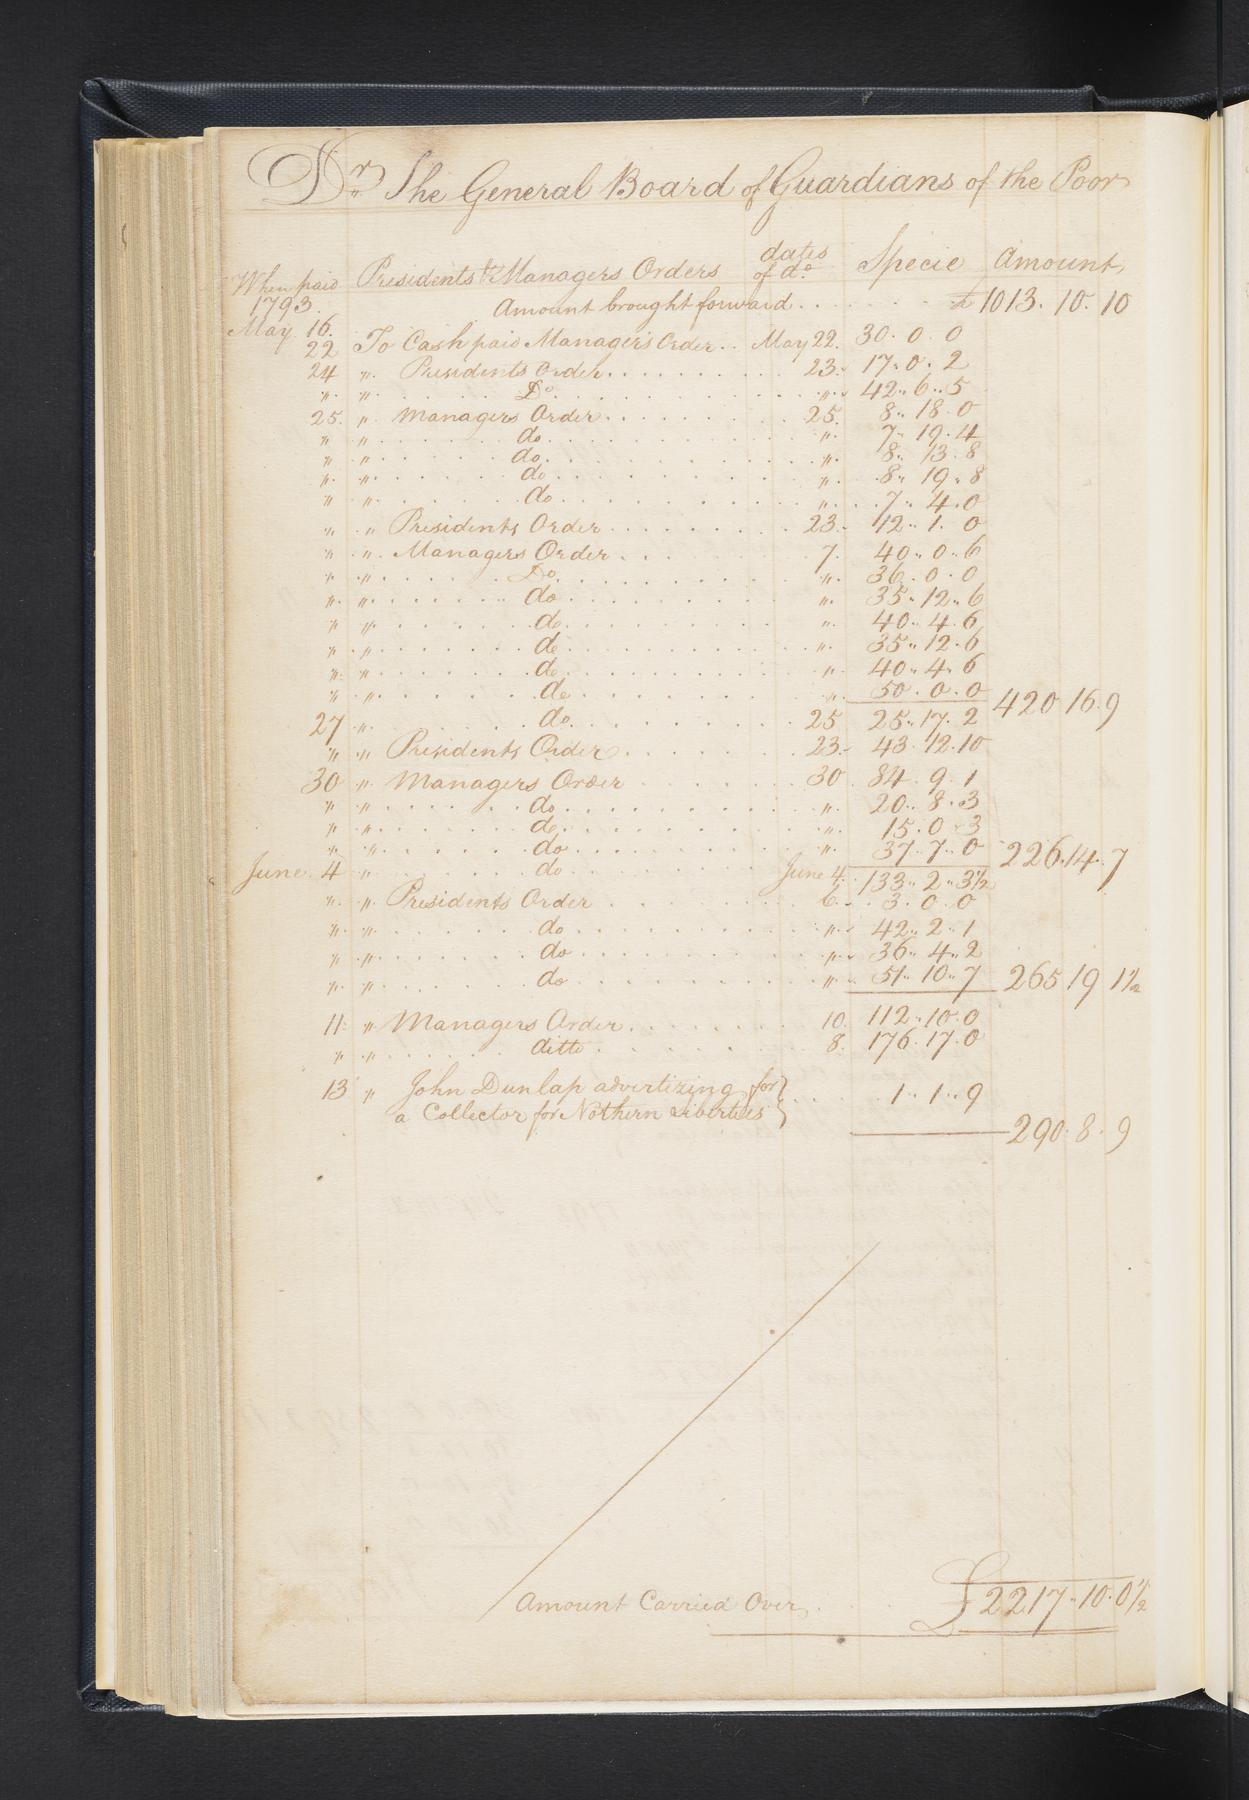 Dr. The General Board of Guardians of the Poor
When paid Presidents & Managers Orders dates of do. Specie Amount
1793. Amount brought forward . . . . £1013. 10. 10
May 16.
22 To Cash paid Managers Order . . May 22. 30. 0. 0
24 ". Presidents Order . . . . 23. 17. 0. 2
". ". Do. . . . ". 42. 6. 5
25. ". Managers Order . . . . 25. 8. 18. 0
" ". do. . . . ". 7. 19. 4
" ". do. . . . ". 8. 13. 8
" ". do. . . . ". 8. 19. 8
" ". do. . . . ". 7. 4. 0
" ". Presidents Order . . . . 23. 12. 1. 0
" ". Managers Order . . . 7. 40. 0. 6
" ". Do. . . . ". 36. 0. 0
" ". do. . . . ". 35. 12. 6
" ". do. . . . ". 40. 4. 6
" ". do. . . . ". 35. 12. 6
" ". do. . . . ". 40. 4. 6
" ". do. . . . ". 50. 0. 0 420 16. 9
27 ". do. . . . 25 25. 17. 2
" ". Presidents Order . . . 23. 43. 12. 10
30 ". Managers Order . . . 30 84. 9. 1
" ". do. . . . ". 20. 8. 3
" ". do. . . . ". 15. 0. 3
" ". do. . . . ". 37. 7. 0 226. 14. 7
June. 4 ". do . . . June 4. 133. 2. 3½
" ". Presidents Order . . . 6. 3. 0. 0
" ". do . . . ". 42. 2. 1
" ". do . . . ". 36. 4. 2
" ". do . . . ". 51. 10. 7 265 19 1½
11. " Managers Order . . . 10. 112. 10. 0
" ". ditto . . . 8. 176. 17. 0
13 " John Dunlap advertizing for } . . . 1. 1. 9
a Collector for Nothern Liberties }
290. 8. 9
Amount Carried Over . . . £2217. 10. 0½